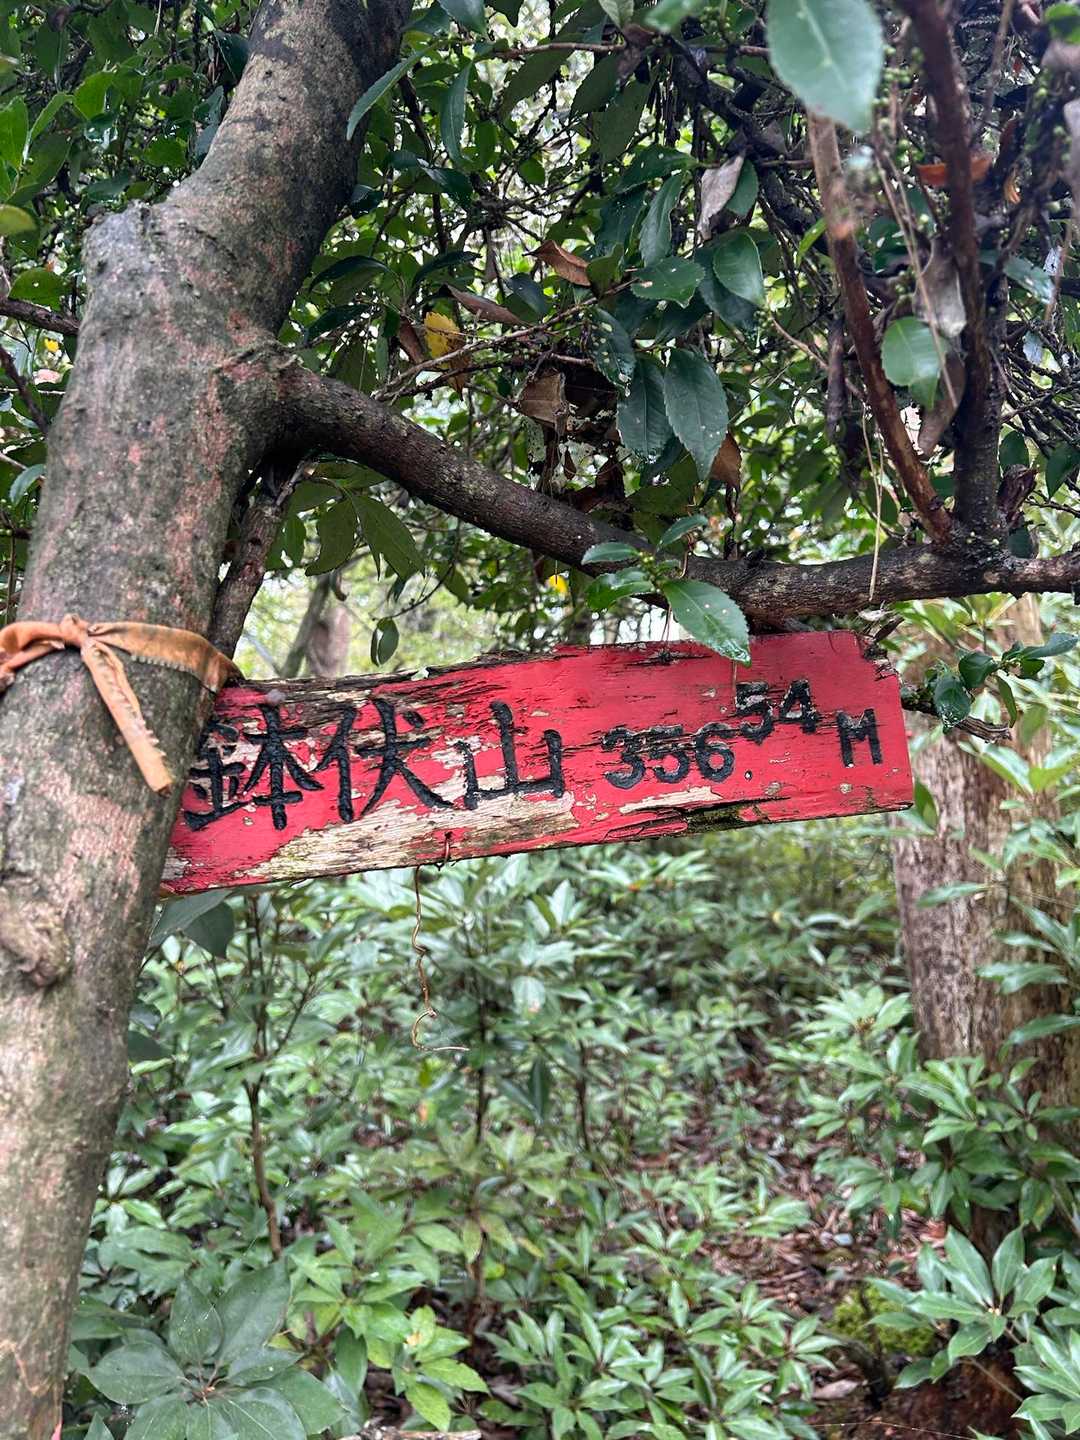 鉢伏山 356.54M